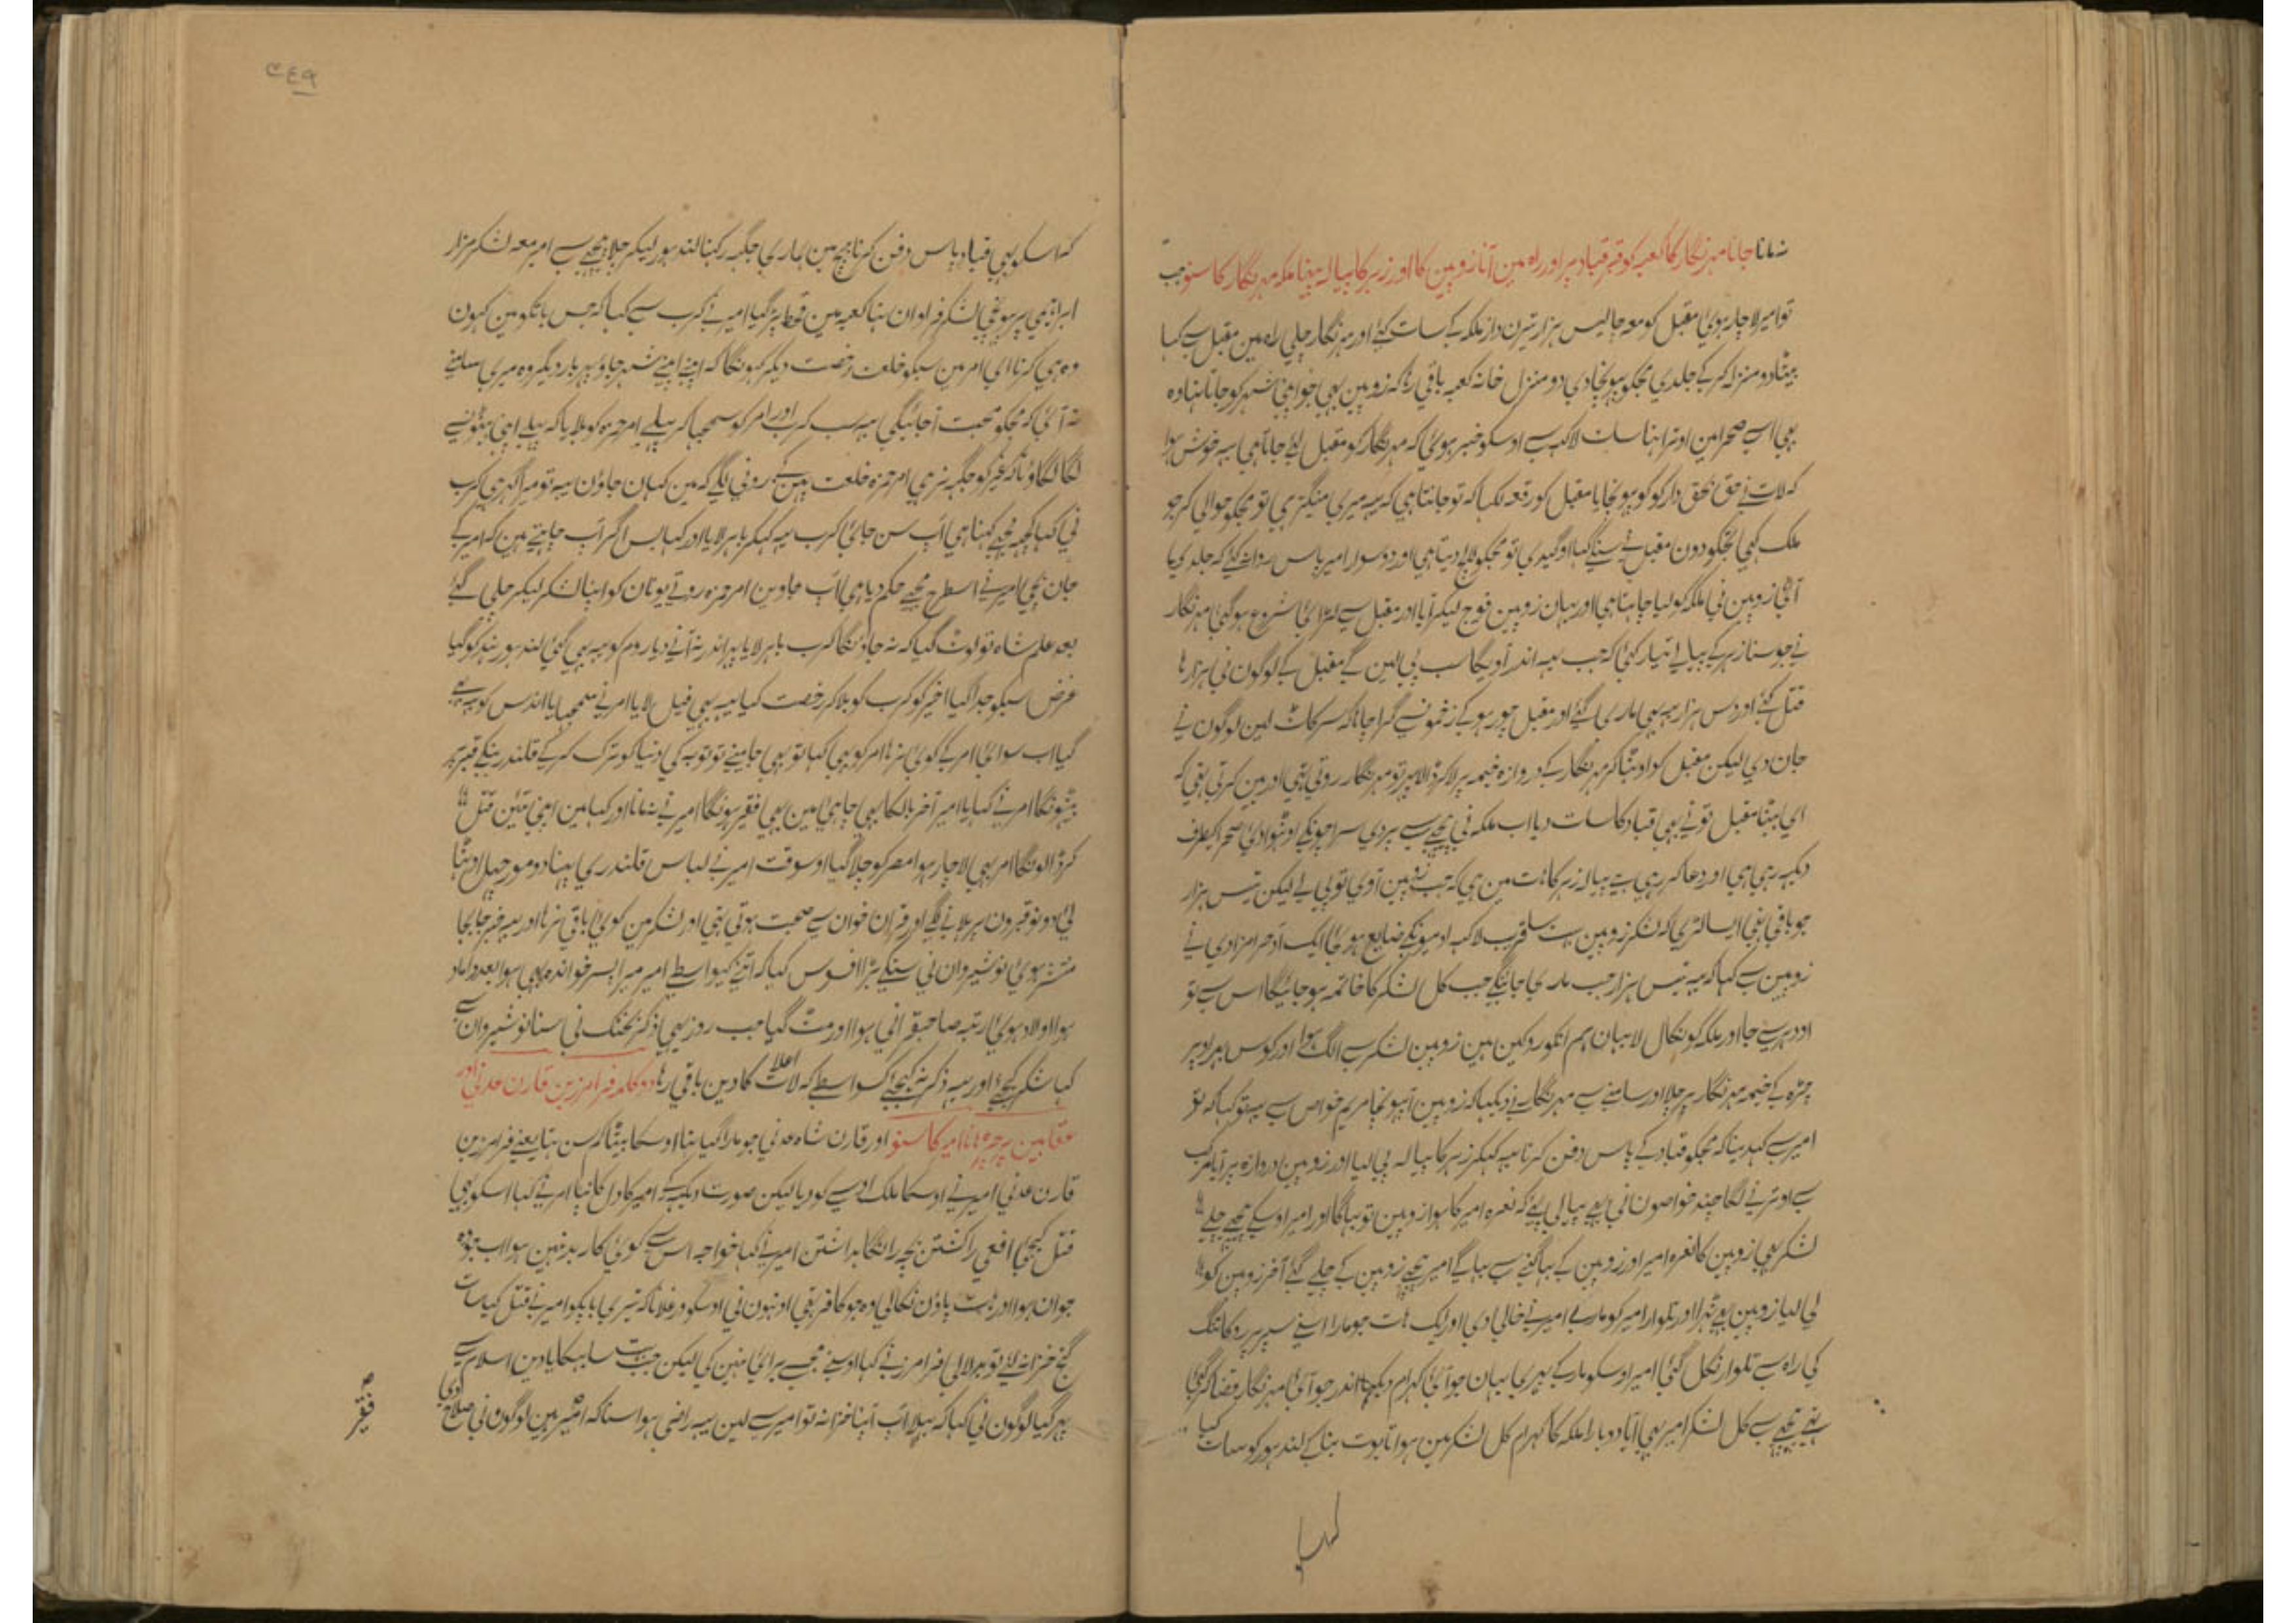 نہ مانا جانا مہر نگار کا کعبہ کو قبر قباد پر اور راہ مین آنا زوپین کا اور زہر کا پیالہ پینا ملکہ مہر نگار کا سنو جب
تو امیر لاچار ہوئی مقبل کو معہ چالیس ہزار تیرن داز ملکہ کے سات کئے اور مہر نگار چلی راہ مین مقبل سے کہا
بیٹا دو منزلہ کر کے جلدی مجکو پہونچا دی دو منزل خانہ کعبہ باقی رہا کہ زوپین بھی جو اپنی شہر کو جاتا تہا وہ
بھی اسی صحرا مین اوترا تہا سات لاکہہ سے اوسکو خبر ہوئی کہ مہر نگار کو مقبل لئے جاتا ہی یہہ خوش ہوا
کہ لات نے حق بحق دار کو پہونچایا مقبل کو رقعہ لکہا کہ تو جانتا ہی کہ یہہ میری منگیتر ہی تو مجکو حوالی کر جو
ملک کہی تجکو دون مقبل نے سنکے کہا او گیدی تو مجکو لالچ دیتا ہی اور دو سوار امیر پاس روانہ کئے کہ جلدی یا
آئی زوپین نی ملکہ کو لیا چاہتا ہی اور یہان زوپین فوج لیکر آیا اور مقبل سے لڑائی شروع ہوگئی مہر نگار
نے جو سنا زہر کے پیالے تیار کئی کہ جب یہہ اندر آویگا سب پی لین گے مقبل کے لوگون نی ہزارہا
قتل کئے اور دس ہزار یہہ بھی ماری گئے اور مقبل چور ہو کے زخمونسے گرا چاہا کہ سر کاٹ لین لوگون نے
جان دی لیکن مقبل کو اوٹہا کر مہر نگار کے دروازہ خیمہ پر لا کر ڈالا پہر تو مہر نگار روتی تہی اور بین کرتی تہی کہ
ای بیٹا مقبل تونے بھی قباد کا سات دیا اب ملکہ نی
دیکہہ رہی ہی اور دعا کر رہی ہے پیالہ زہر کا ہات مین ہی کہ جب زوپین آوی تو پی لے لیکن تیس ہزار
جو باقی تہی ایسا لڑی کہ لشکر زوپین سے قریب لاکہہ ادمیونکے ضایع ہوئی ایک آد حرامزادی نے
زوپین سے کہا کہ یہہ تیس ہزار جب ماری جائنگے جب کل لشکر کا خاتمہ ہو جائیگا اس سے تو
اودہر سے جا اور ملکہ کو نکال لا یہان ہم انکو روکین ہین زوپین لشکر سے الگ ہوا اور
چڑہ کے خیمہ مہر نگار پر چلا اور سامنے سے مہر نگار نے دیکہا کہ زوپین آپہونچا مریم خواص سے کہا کہ تو
امیر سے کہدینا کہ مجکو قباد کے پاس دفن کرنا یہہ کہکر زہر کا پیالہ پی لیا اور زوپین دروازہ پر آیا مرکب
سے اوترنے لگا چند خواصون نی بھی پیالی پئے کہ نعرہ امیر کا ہوا زوپین تو بہاگا اور امیر اوسکے پیچھے چلے
لشکر بھی زوپین کا نعرہ امیر اور زوپین کے بہاگنے سے بہاگے امیر پیچھے زوپین کے چلے گئے آخر زوپین کو
لی لیا زوپین بھی ٹہرا اور تلوار امیر کو ماری امیر نے خالی دی اور ایک ہات جو مارا اسنے سپر پر روکا تنگ
کی راہ سے تلوار نکل گئی امیر اوسکو مار کے پہری یہان جو آئی کہرام دیکہا اندر جو آئی مہر نگار قضا کر گئی
تہی پیچھے سے کل لشکر امیر بھی آیا دوبارا ملکہ کا کہرام کل لشکر مین ہوا تابوت بنا کے لندہور کو سات کیا
کہ اسکو بھی قباد پاس دفن کرنا بیچ مین ہماری جگہہ رکہنا لندہور لیکر چلا پیچھے سے امیر معہ لشکر مزار
ابراہیمی پر پہونچی لشکر فراوان تہا کعبہ مین قحط پڑ گیا امیر نے کرب سے کہا کہ جس بات کو مین کہون
وہ ہی کرنا ای امیر مین سبکو خلعت رخصت دیکر کہونگا کہ اپنے اپنے شہر جاو پہر بار دیگر وہ میری سامنے
نہ آئی کہ مجکو محبت آ جائیگی یہہ سب کرب اور امر کو سمجہا کر پہلے امیر حمزہ کو بلایا کہ پہلے اپنی بیٹونسے
لگا لگاوٗ تا کہ غیر کو جگہہ نر ہی امیر حمزہ خلعت پہن کے رونی لگے کہ مین کہان جاؤن یہہ تو میرا گہر ہی کرب
نی کہا کچہہ مجھے کہنا ہی آپ سن جائی کرب یہہ کہکر باہر لایا اور کہا بس اگر آپ چاہتے ہین کہ امیر کے
جان بچی امیر نے اسطرح مجھے حکم دیا ہی آپ جاوین امیر حمزہ روتے یونان کو اپنا لشکر لیکر چلی گئے
بعد علم شاہ تو لوٹ گیا کہ نہ جاؤنگا کرب باہر لایا پہر اندر نہ آنے دیا روم کو یہہ بھی گئی لندہور ہند کو گیا
غرض سبکو جدا کیا اخیر کو کرب کو بلا کر رخصت کیا یہہ بھی فیل لایا امر نے سمجہایا اندلس کو یہہ بھی
گیا اب سوائی امر کے کوئی نرہا امر کو بھی کہا تو بھی جا مینے تو توبہ کی دنیا کو ترک کر کے قلندر بنکے قبر پر
بیٹہونگا امر نے کہا یا امیر آخر بالکا بھی چاہی مین بھی فقیر ہونگا امیر نے نہ مانا اور کہا مین اپنی تئین قتل
کر ڈالونگا امر بھی لاچار ہوا مصر کو چلا گیا اوسوقت امیر نے لباس قلندری پہنا دو مورچہل اوٹہا
لی دونو قبرون پر ہلانے لگے اور قران خوان سے صحبت ہوتی تہی اور لشکر مین کوئی باقی نرہا اور یہہ خبر جابجا
منتشر ہوئی نوشیروان نی سنکے بڑا افسوس کیا کہ اتنے کیواسطے امیر میرا پسر خواندہ بھی ہوا بعد داماد
ہوا اولاد ہوئی رتبہ صاحبقرانی ہوا اور مٹ گیا جب روز یہی ذکر بختک نی سنا نوشیروان سے
کہا شکر کیجئے اور یہہ ذکر نہ کیجئے کسواسطے کہ لات اعلا کا دین باقی رہا دوکلمہ فرامرز بن قارن عدنی اور
عقابین پر چڑہانا امیر کا سنو اور قارن شاہ عدنی جو مارا گیا تہا اوسکا بیٹا کمسن تہا یعنے فرامرز بن
قارن عدنی امیر نے اوسکا ملک اوسے کو دیا لیکن صورت دیکہہ کے امیر کا دل کانپا امر نے کہا اسکو بھی
قتل کیجی افعی را کشتن بچہ را نگاہداشتن امیر نے کہا خواجہ اس سے کوئی کار بد نہین ہوا اب جو وہ
جوان ہوا اور ہات پاؤن نکالی وہ جو کافر تہی اونہون نی اوسکو ورغلانا کہ تیری باپکو امیر نے قتل کیا سات
گنج خزانہ لئے تو بدلا لی فرامرز نے کہا اوسنے مجسے برائی نہین کی لیکن جب سات دین اسلام سے
پہر گیا لوگون نی کہا کہ پہلا آپ اپنا خزانہ تو امیر سے لین یہہ راضی ہوا سنا کہ امیر لوگون نی صلاح دی
فقیر